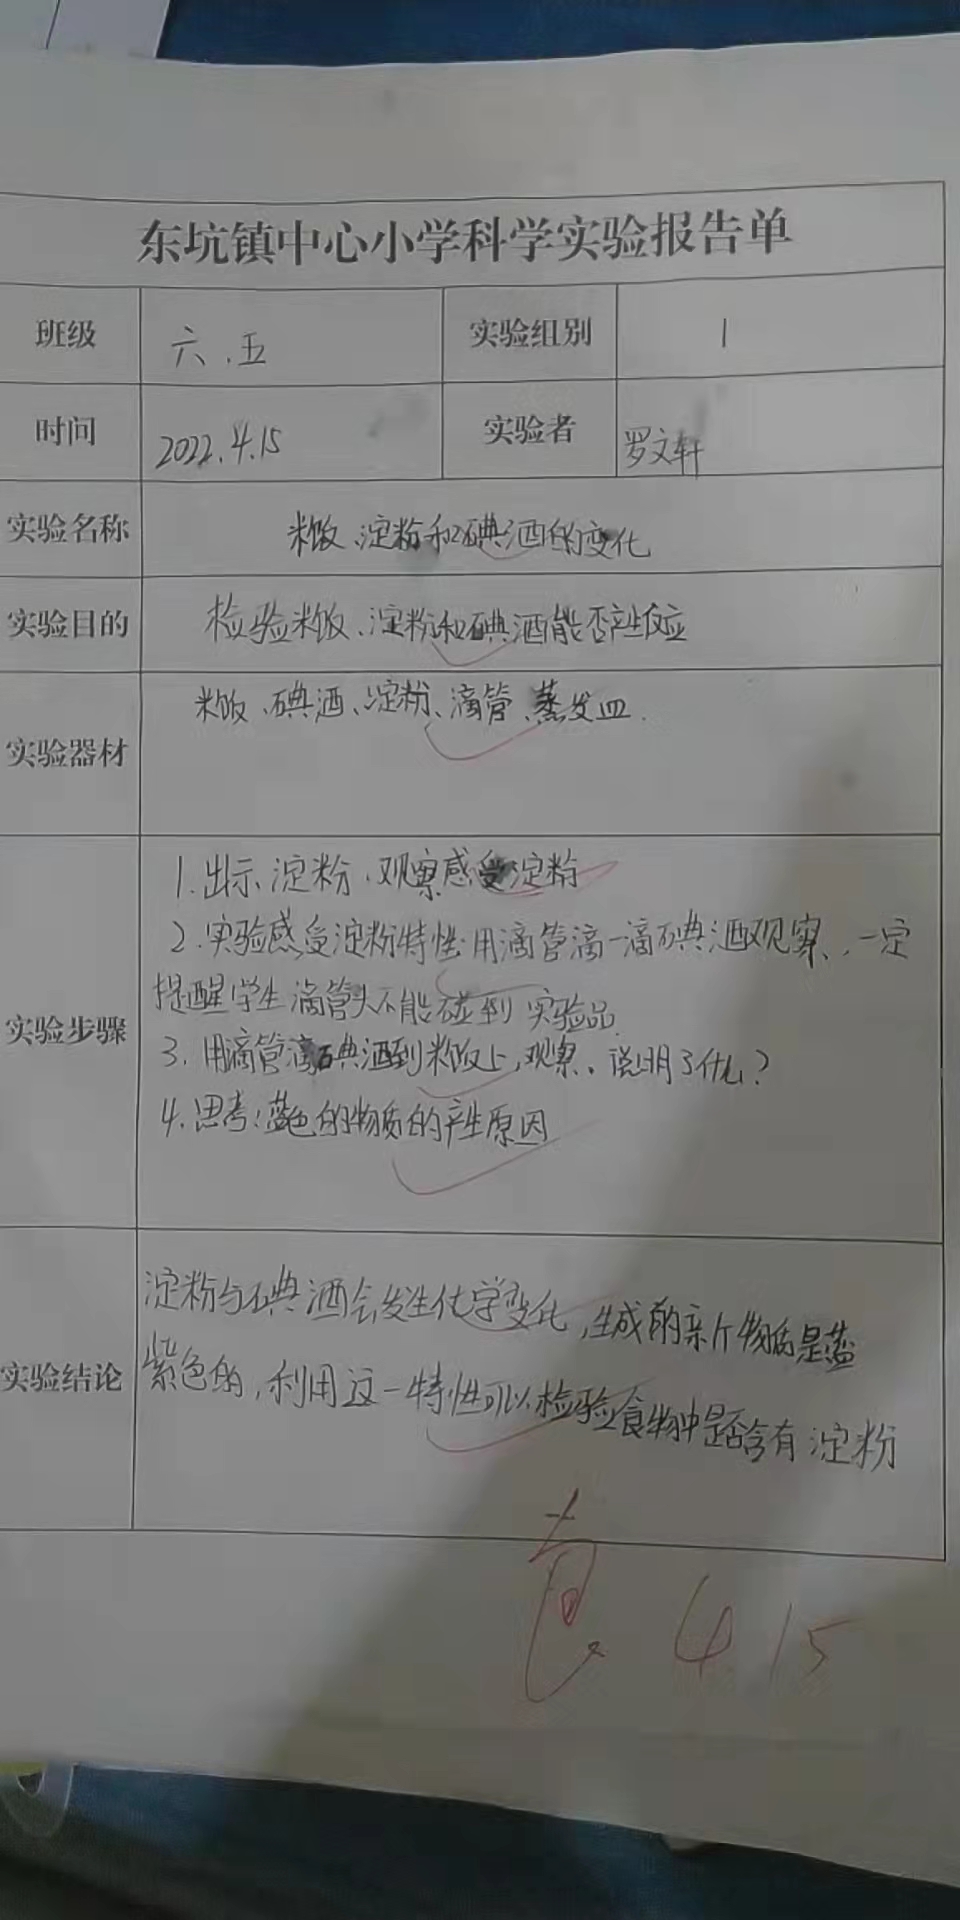 东坑镇中心小学科学实验报告单
班级 六.五 实验组别 1
时间 2022.4.15 实验者 罗文轩
实验名称 米饭、淀粉和碘酒的变化
实验目的 检验米饭、淀粉和碘酒能否产生反应
米饭、碘酒、淀粉、滴管、蒸发皿.
实验器材
1.出示淀粉,观察感受淀粉
2.实验感受淀粉特性:用滴管滴一滴碘酒观察,一定
提醒学生滴管头不能碰到实验品
实验步骤
3.用滴管滴碘酒到米饭上,观察。说明了什么?
4.思考:蓝色的物质的产生原因
淀粉与碘酒会发生化学变化,生成的新物质是蓝
实验结论 紫色的,利用这一特性可以检验食物中是否含有淀粉
4.15